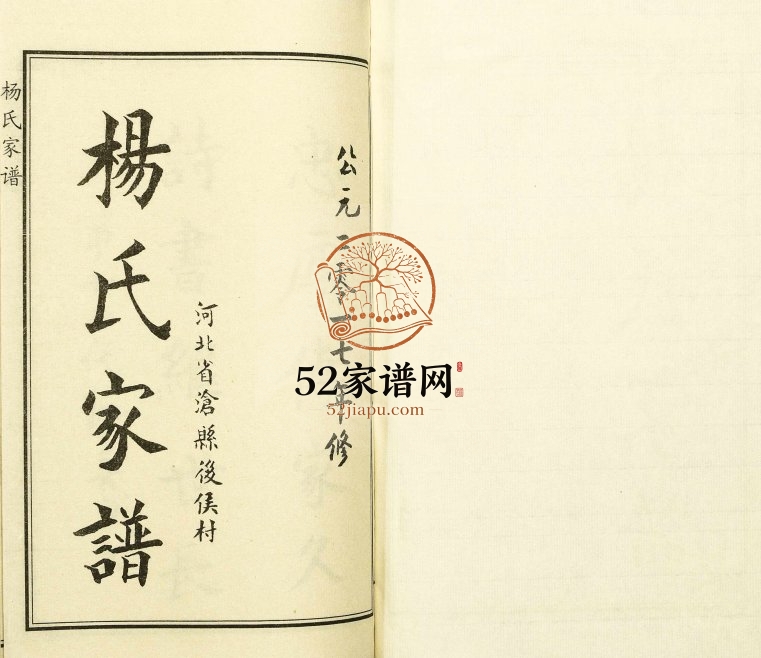 公元二零一七年修
河北省滄縣後侯村
楊氏家譜
杨氏家谱
52家谱网
52jiapu.com